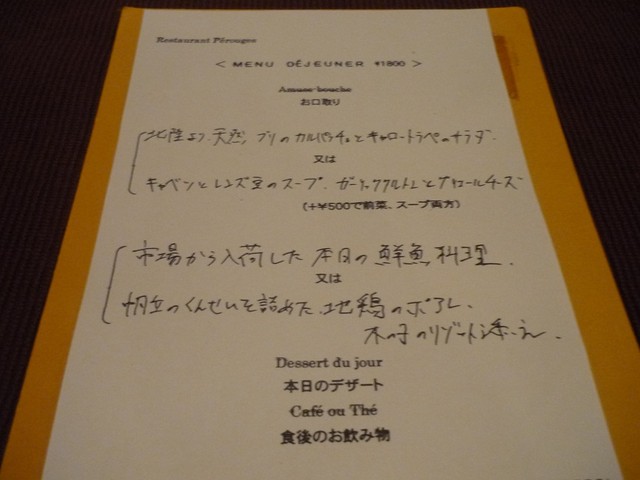 Restaurant Pérouges
< MENU DÉJEUNER ¥1800 >
Amuse-bouche
お口取り
北陸より 天然ブリのカルパッチョとキャロートラペのサラダ
又は
キャベツとレンズ豆のスープ. ガーリッククルトンと チーズ
(+¥500で前菜、スープ両方)
市場から入荷した 本日の 鮮魚料理.
又は
帆立のくんせいを詰めた 地鶏のポアレ.
木の子のリゾット添え.
Dessert du jour
本日のデザート
Café ou Thé
食後のお飲み物